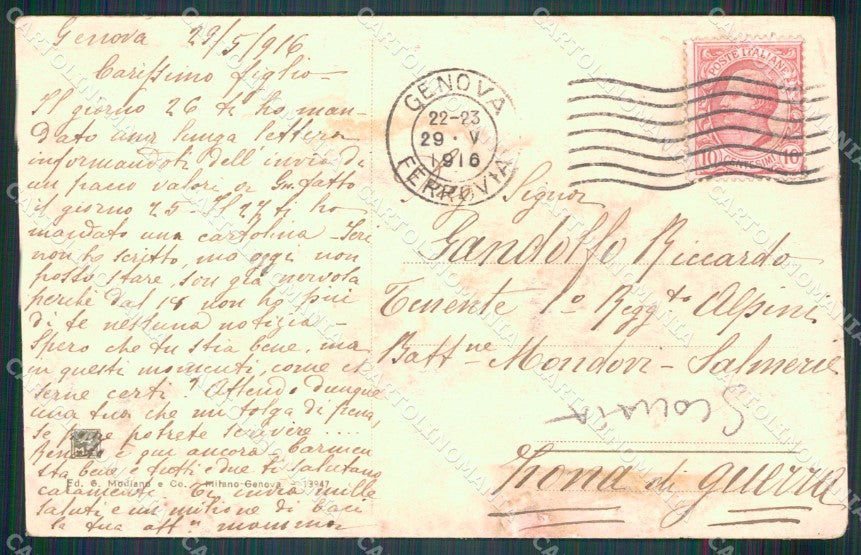 Genova 29/5/916
Carissimo figlio -
Il giorno 26 ti ho man-
dato una lunga lettera
informandoti dell'invio di
un pacco valori fatto
il giorno 25 - Il 27 ti ho
mandato una cartolina - Ieri
non ho scritto, ma oggi non
posso stare, son già nervosa
perché dal 18 non ho più
di te nessuna notizia -
Spero che tu stia bene, ma
in questi momenti, come es
serne certi? Attendo dunque
una tua che mi tolga di pena,
se pure potrete scrivere ....
è qui ancora. Carmen
sta bene e tutti e due ti salutano
caramente. Ti invio mille
saluti e un milione di baci
la tua aff. mamma
Ed. G. Modiano e Co. - Milano-Genova - 13947
GENOVA
22-23
29 · V
1916
FERROVIA
POSTE ITALIANE
10 CENTESIMI 10
Signor
Gandolfo Riccardo
Tenente 1º Regg.to Alpini
Batt.ne Mondovi - Salmerie
Zona di guerra
CARTOLINOMANIA